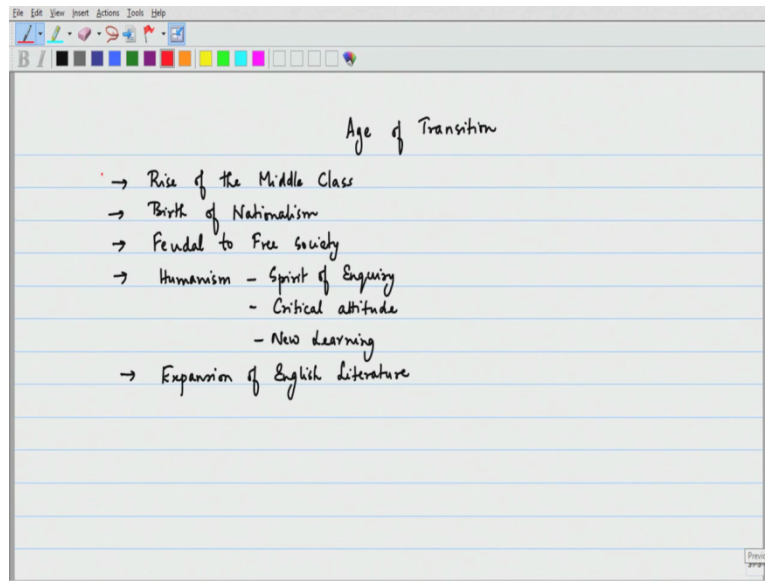 File Edit View Insert Actions Tools Help
B I
Age of Transition
→ Rise of the Middle Class
→ Birth of Nationalism
→ Feudal to Free society
→ Humanism - Spirit of Enquiry
- Critical attitude
- New Learning
→ Expansion of English Literature